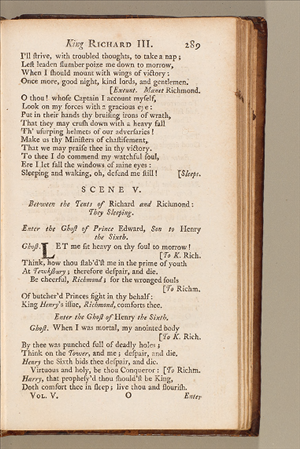 King RICHARD III. 289
I'll ſtrive, with troubled thoughts, to take a nap;
Leſt leaden ſlumber poize me down to morrow,
When I ſhould mount with wings of victory:
Once more, good night, kind lords, and gentlemen.
[Exeunt. Manet Richmond.
O thou! whoſe Captain I account myſelf,
Look on my forces with a gracious eye:
Put in their hands thy bruiſing irons of wrath,
That they may cruſh down with a heavy fall
Th' uſurping helmets of our adverſaries!
Make us thy Miniſters of chaſtiſement,
That we may praiſe thee in thy victory.
To thee I do commend my watchful ſoul,
Ere I let fall the windows of mine eyes:
Sleeping and waking, oh, defend me ſtill! [Sleeps.
SCENE V.
Between the Tents of Richard and Richmond:
They Sleeping.
Enter the Ghoſt of Prince Edward, Son to Henry
the Sixth.
Ghoſt. LET me ſit heavy on thy ſoul to morrow!
[To K. Rich.
Think, how thou ſtab'dſt me in the prime of youth
At Tewksbury; therefore deſpair, and die.
Be cheerful, Richmond; for the wronged ſouls
[To Richm.
Of butcher'd Princes fight in thy behalf:
King Henry's iſſue, Richmond, comforts thee.
Enter the Ghoſt of Henry the Sixth.
Ghoſt. When I was mortal, my anointed body
[To K. Rich.
By thee was punched full of deadly holes;
Think on the Tower, and me; deſpair, and die.
Henry the Sixth bids thee deſpair, and die.
Virtuous and holy, be thou Conqueror: [To Richm.
Harry, that propheſy'd thou ſhould'ſt be King,
Doth comfort thee in ſleep; live thou and flouriſh.
VOL. V. O Enter